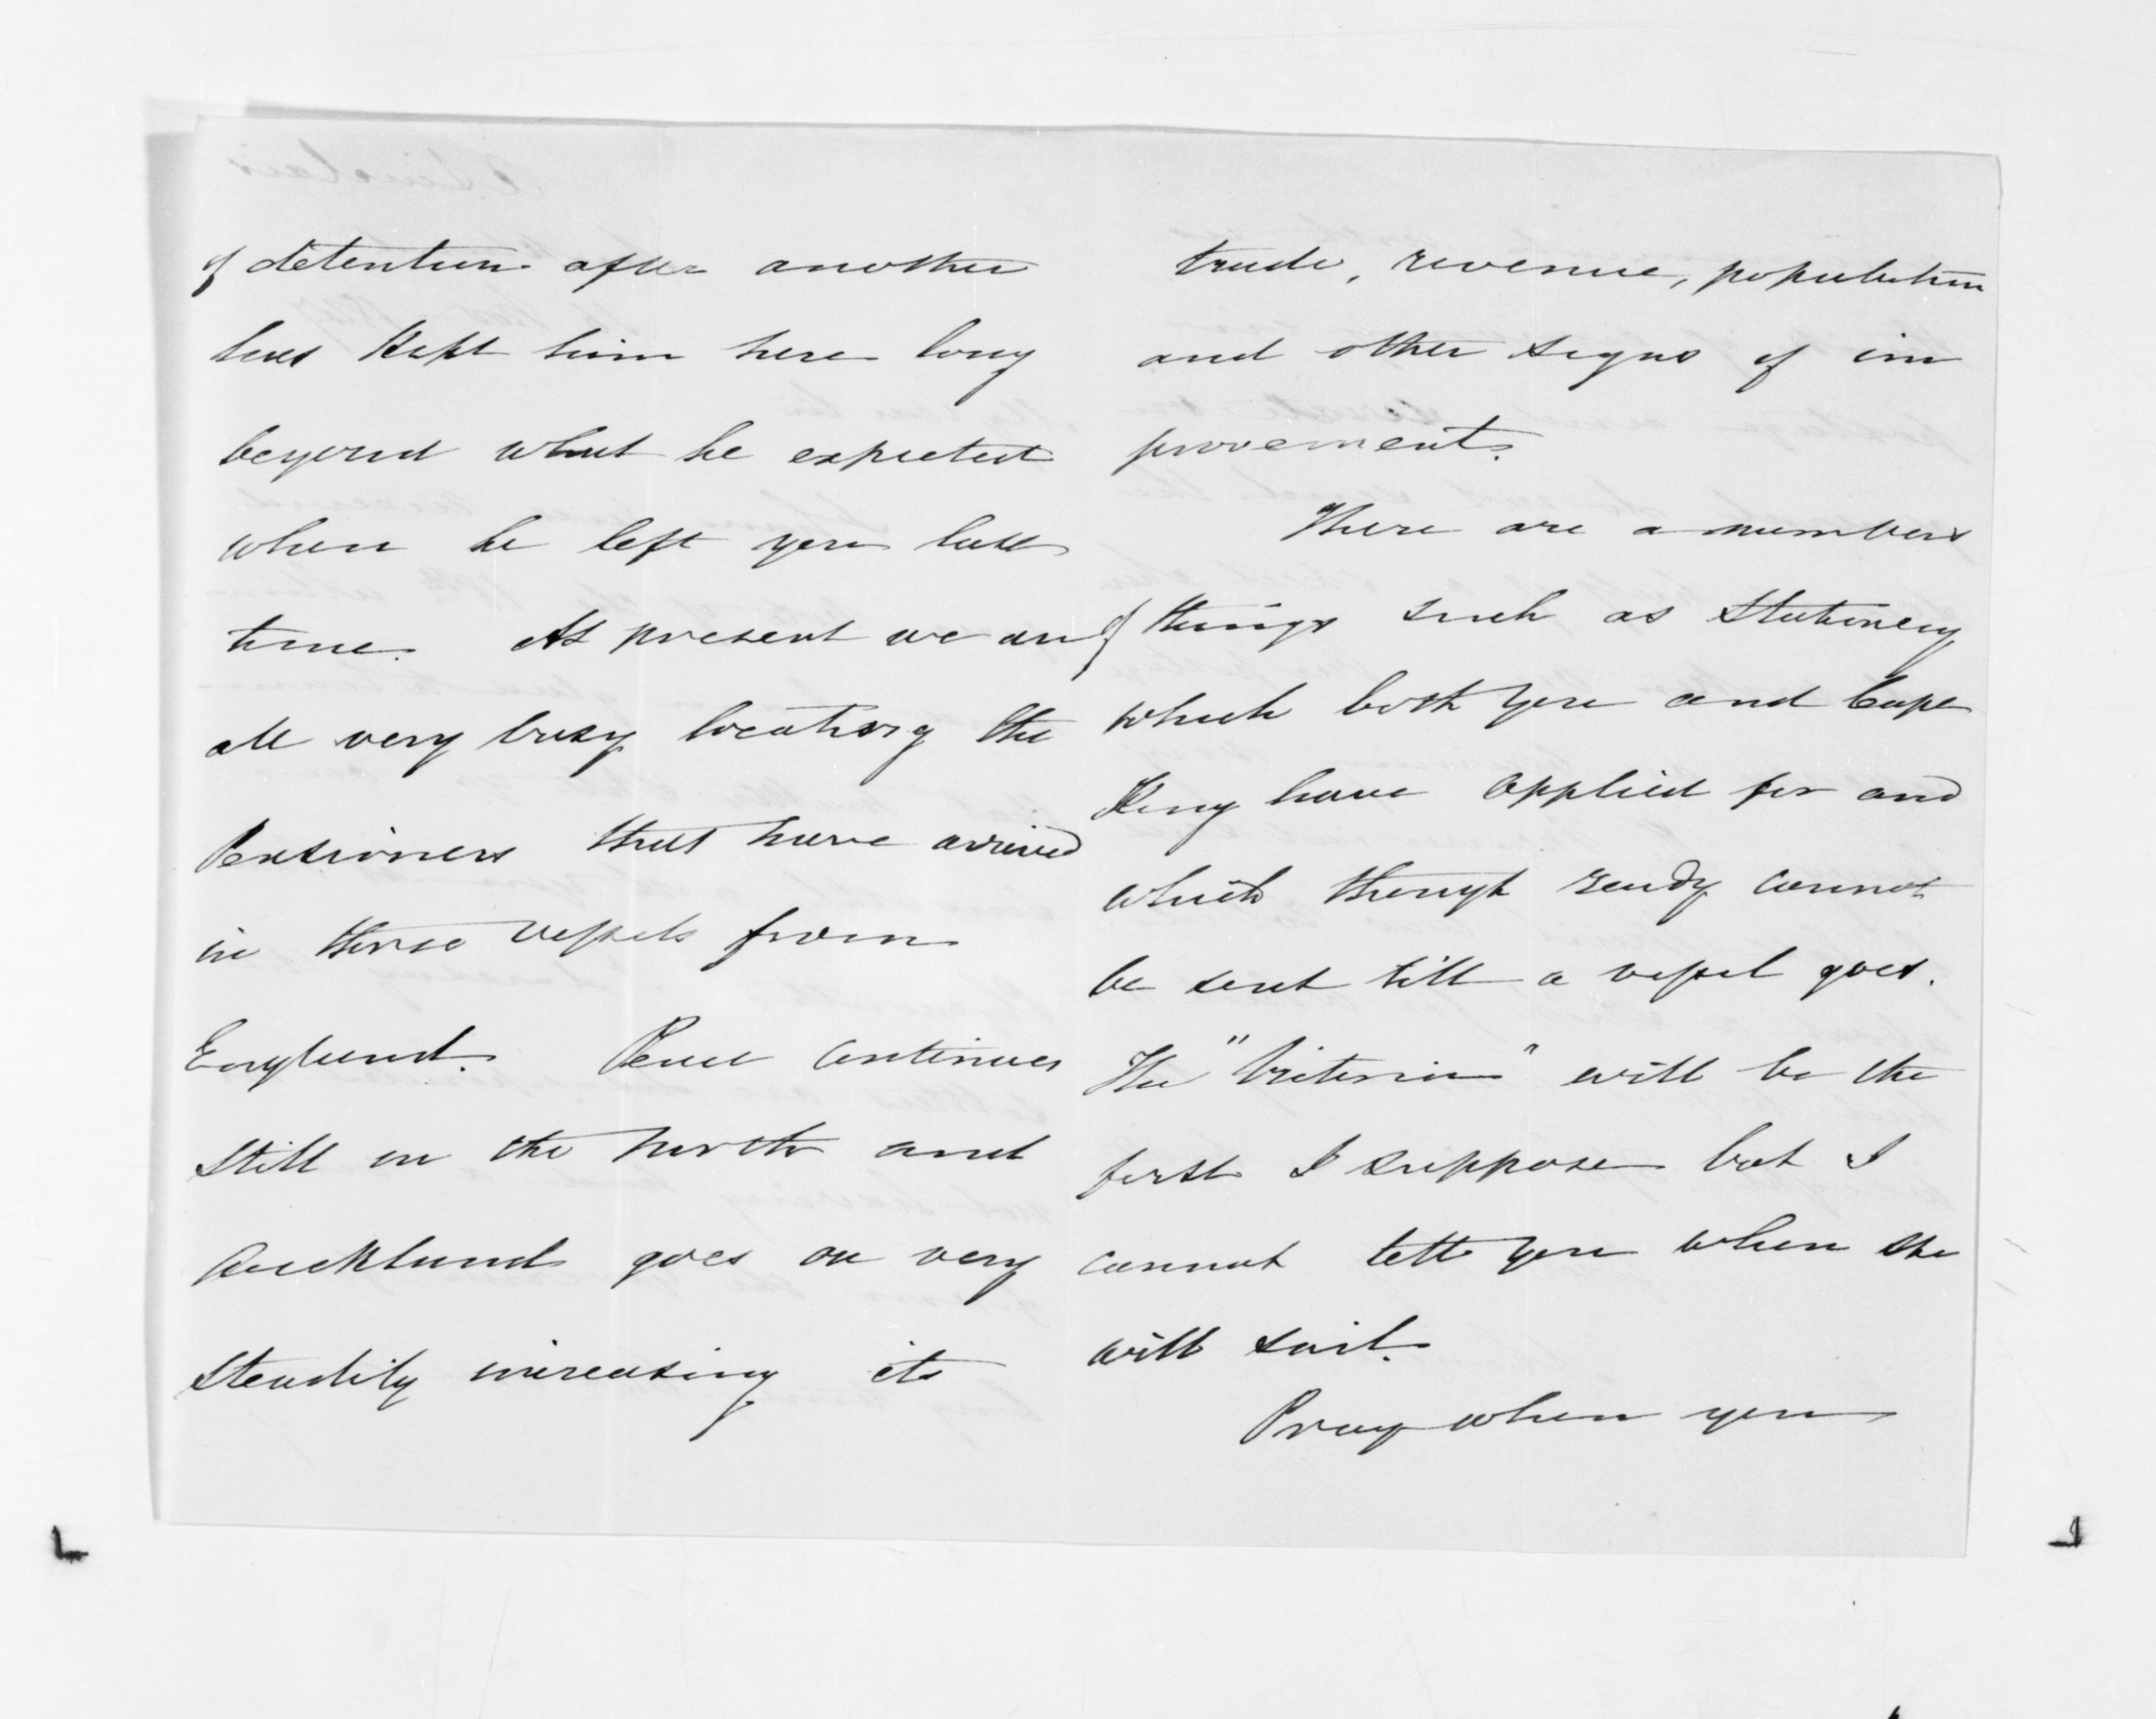 of detention after another
has kept him here long
beyond what he expected
when he left you last
time. At present we are
all very busy locating the
Pensioners that have arrived
in three vessels from
England. Peace continues
still in the north and
Auckland goes on very
steadily increasing its
trade, revenue, population
and other signs of im
provement.
There are a number
of things such as Stationery
which both you and Capt
King have applied for and
which though ready cannot
be sent till a vessel goes.
The "Victoria" will be the
first I suppose but I
cannot tell you when she
will sail.
Pray when you